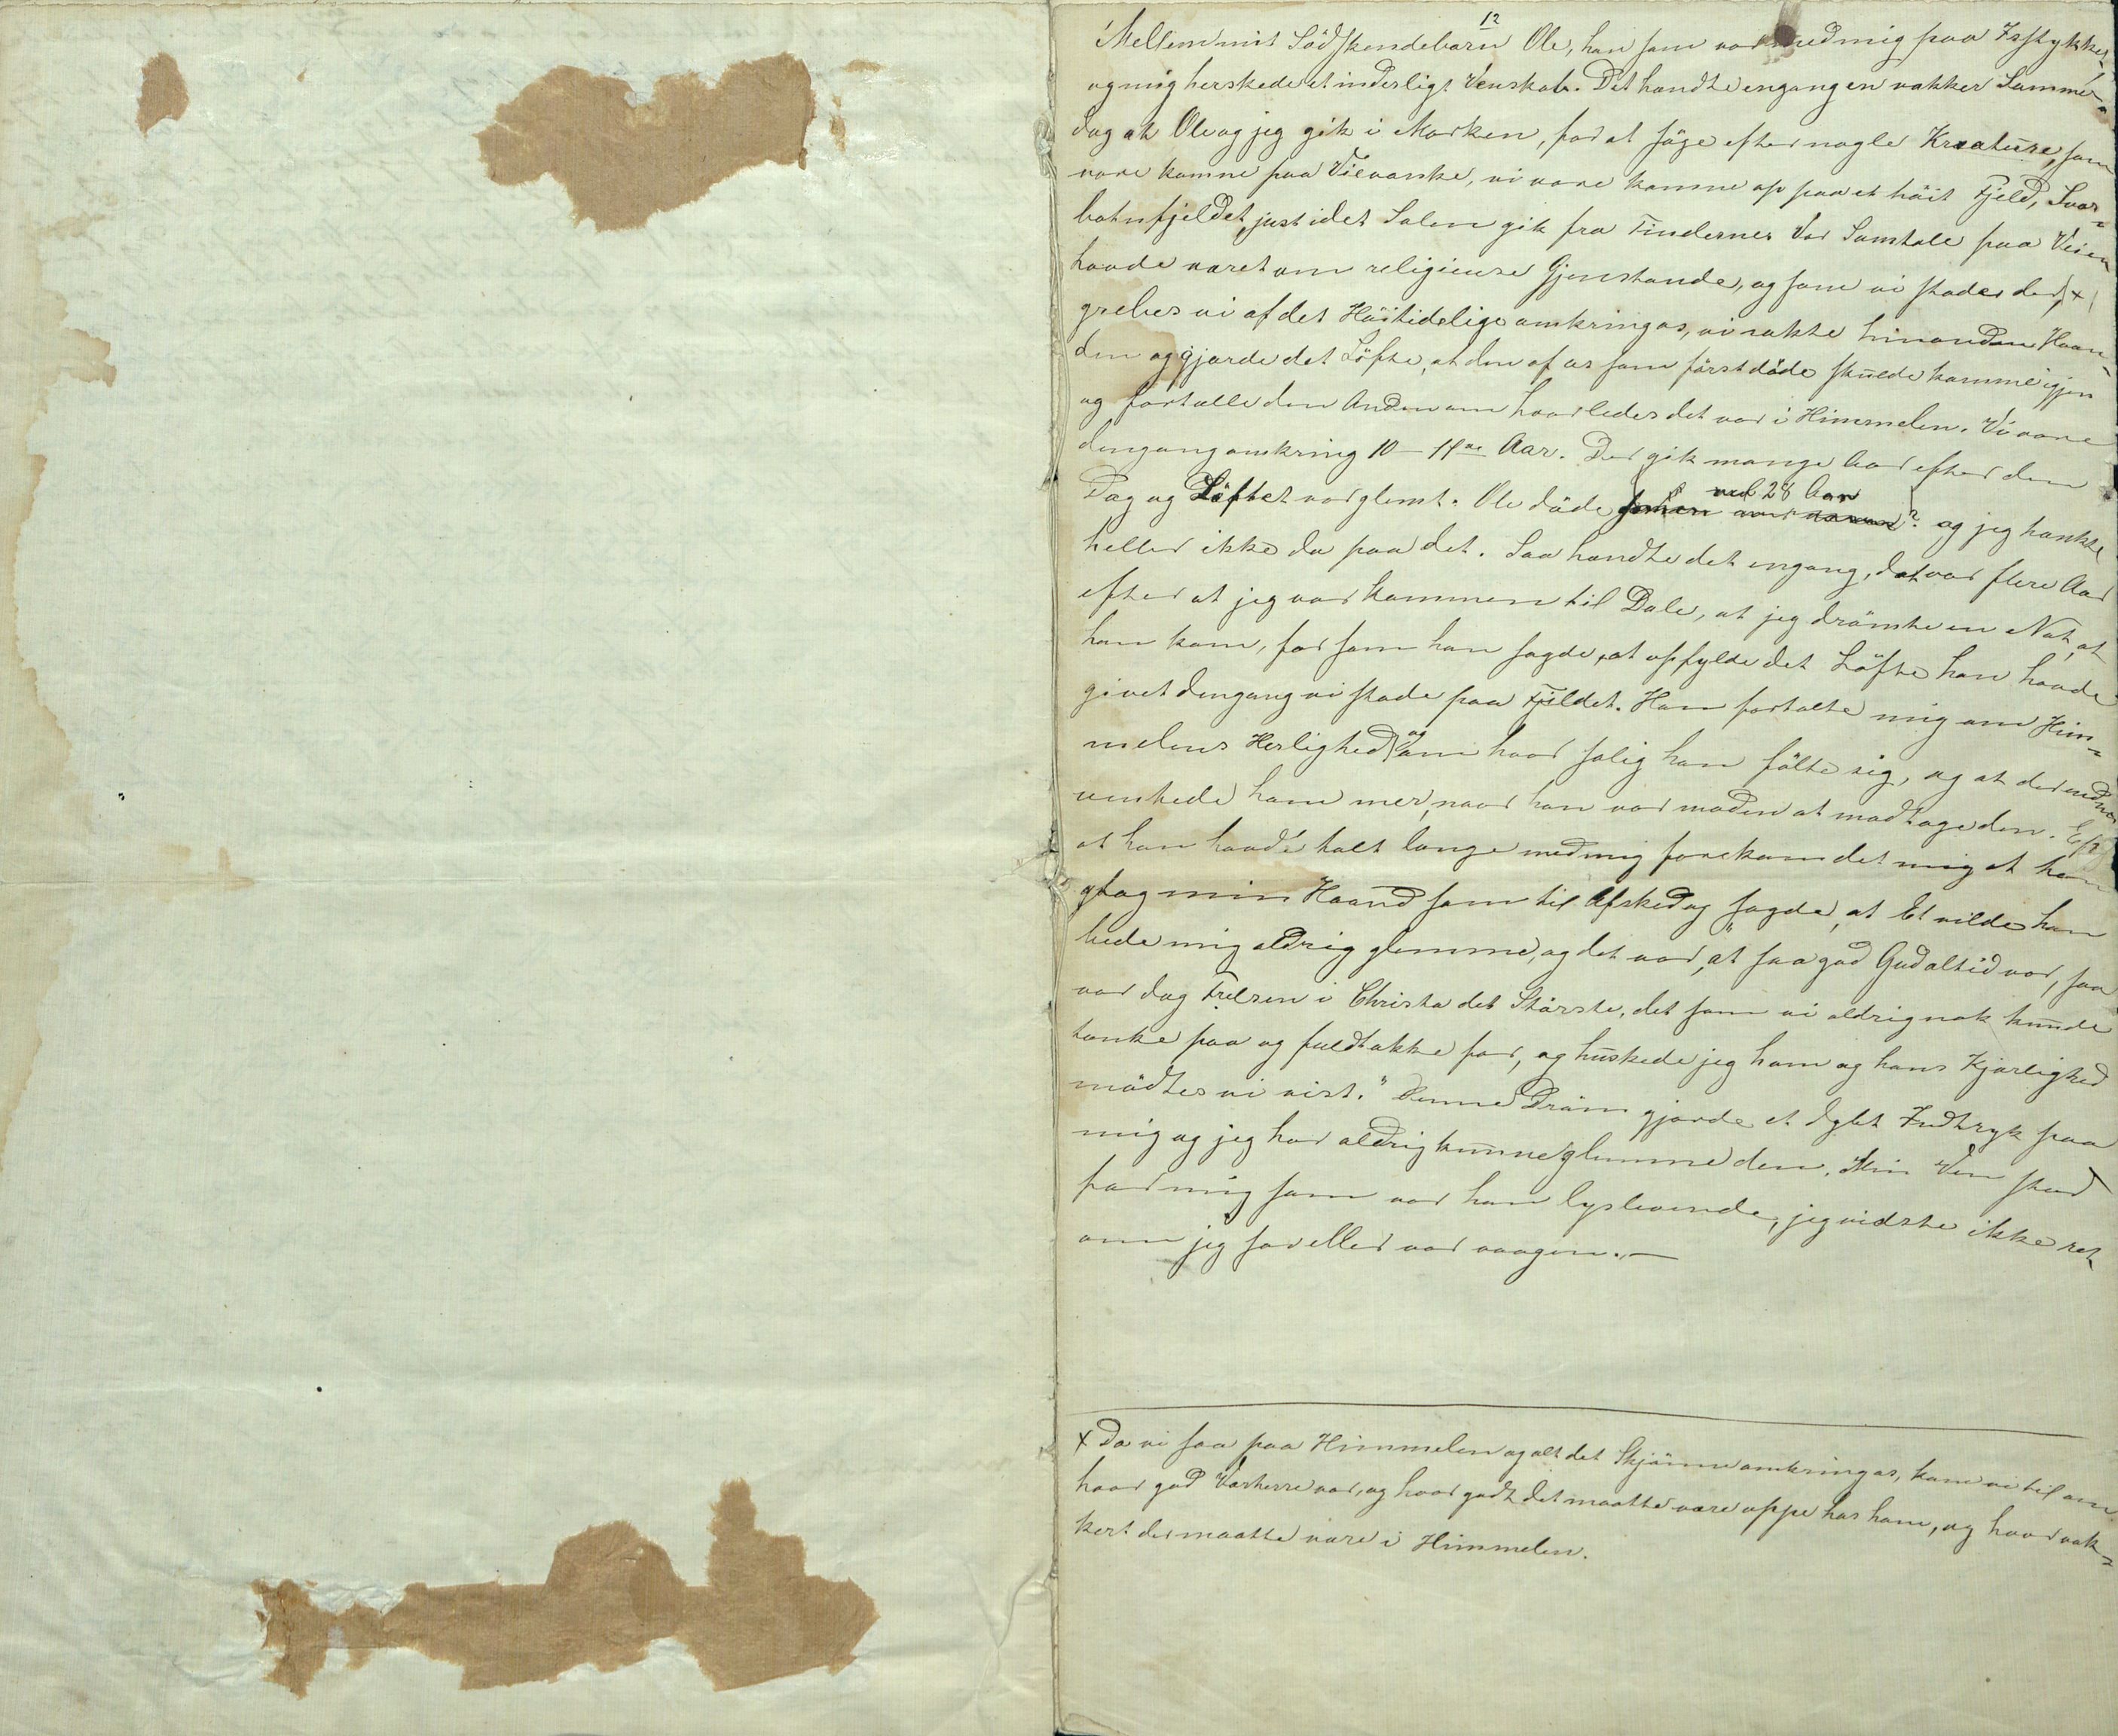 12
Mellem mit Södskendebarn Ole, han som var med mig paa Isstykket,
og mig herskede et inderligt Venskab. Det hændte engang en vakker Sommer-
dag at Ole og jeg gik i Marken, for at söge efter nogle Kreature, som
vare komne paa Vilvanke, vi vare komne op paa et höit Fjeld, Svar-
botnfjeldet, just idet Solen gik fra Tinderne. Vor Samtale paa Veien
havde været om religieuse Gjenstande, og som vi stode der, x
grebes vi af det Höitidelige omkring os, vi rakte hinanden Haan-
den og gjorde det Löfte, at den af os som först döde skulde komme igjen
og fortælle den Anden om hvorledes det var i Himmelen. Vi vare
dengang omkring 10 – 11 Aar. Der gik mange Aar efter den
Dag og Löftet var glemt. Ole döde ved 28 Aar og jeg tænkte
heller ikke da paa det. Saa hændte det engang, det var flere Aar
efter at jeg var kommen til Dale, at jeg drömte en Nat, at
han kom, for som han sagde, at opfylde det Löfte han havde
givet dengang vi stode paa Fjeldet. Han fortalte mig om Him-
melens Herlighed og om hvor salig han fölte sig, og at der endnu
ventede ham mer, naar han var moden at modtage den. Efter
at han havde talt længe med mig forekom det mig at han
tog min Haand som til Afsked og sagde, at Et vilde han
bede mig aldrig glemme, og det var, "at saa god Gud altid var, saa
var dog Frelsen i Christo det Störste, det som vi aldrig nok kunde
tænke paa og fuldtakke for, og huskede jeg ham og hans Kjærlighed
mödtes vi vist." Denne Dröm gjorde et dybt Indtryk paa
mig og jeg har aldrig kunne glemme den. Min Ven stod
for mig som var han lyslevende, jeg vidste ikke ret
om jeg sov eller var vaagen. —
x Da vi saa paa Himmelen og alt det Skjönne omkring os, kom vi til om
hvor god Vorherre var, og hvor godt det maatte være oppe hos ham, og hvor vak-
kert der maatte være i Himmelen.